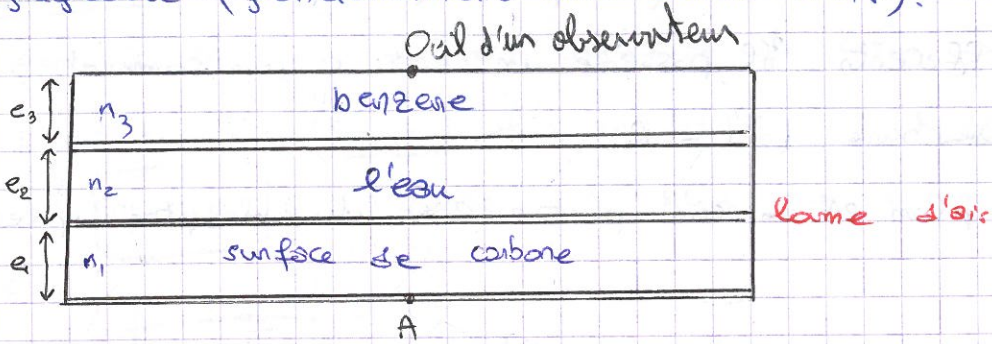 Oeil d'un observateur
e₃ n₃ benzene
e₂ n₂ l'eau
lame d'air
e₁ n₁ surface de carbone
A